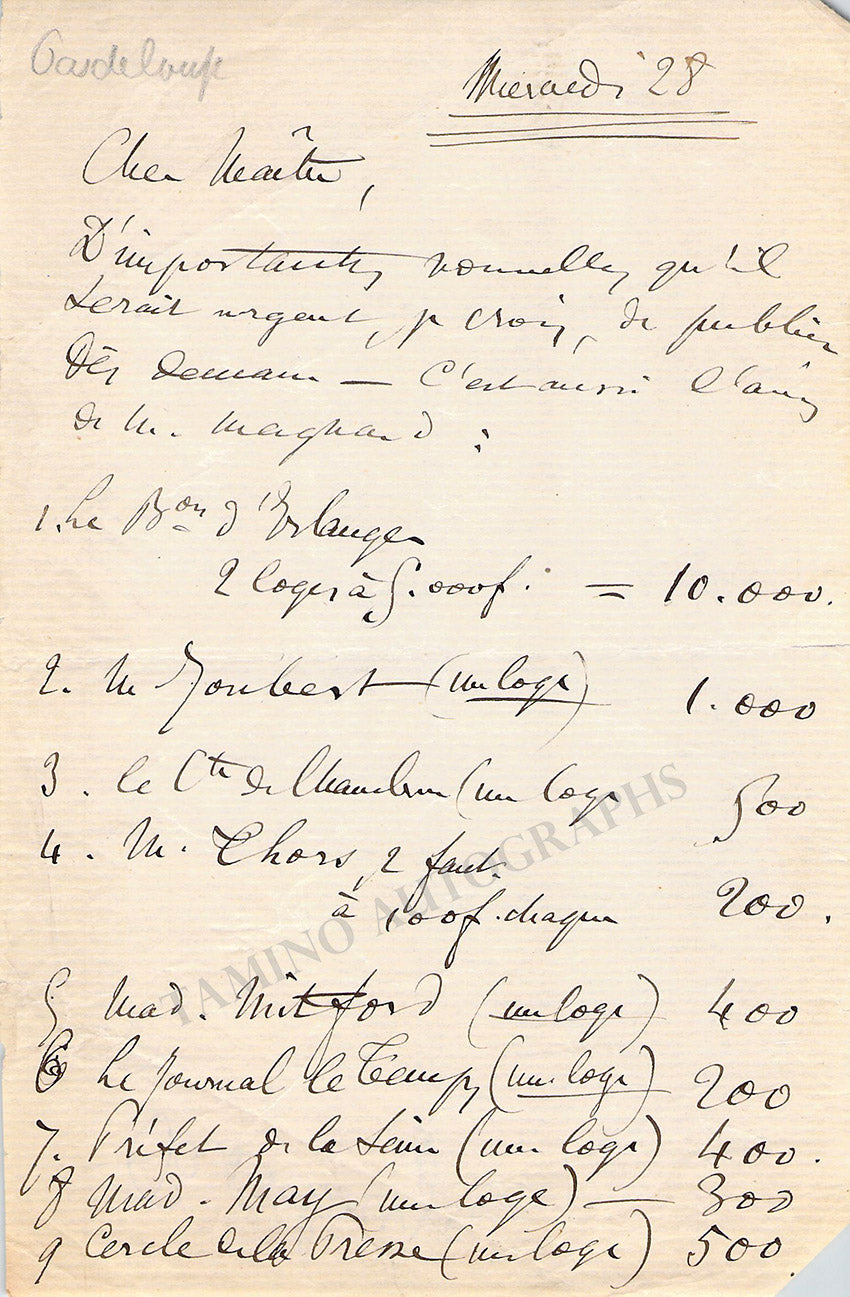 Pasdeloup
Mercredi 28
Cher Maître,
D'importantes nouvelles, qu'il
serait urgent, je crois, de publier
Dès demain — C'est aussi l'avis
de M. Magnard :
1. Le Bon d'Erlanger
2 loges à 5.000f. = 10.000.
2. M Joubert (une loge) 1.000
3. le Cte de Chambrun (une loge 500
4. M. Thors, 2 faut.
à 100f. chaque 200.
5 Mad. Mitford (une loge) 400
6 Le Journal le Temps (une loge) 200
7. Préfet de la Seine (une loge) 400.
8 Mad. May (une loge) — 300
9 Cercle de la Presse (une loge) 500.
TAMINO AUTOGRAPHS